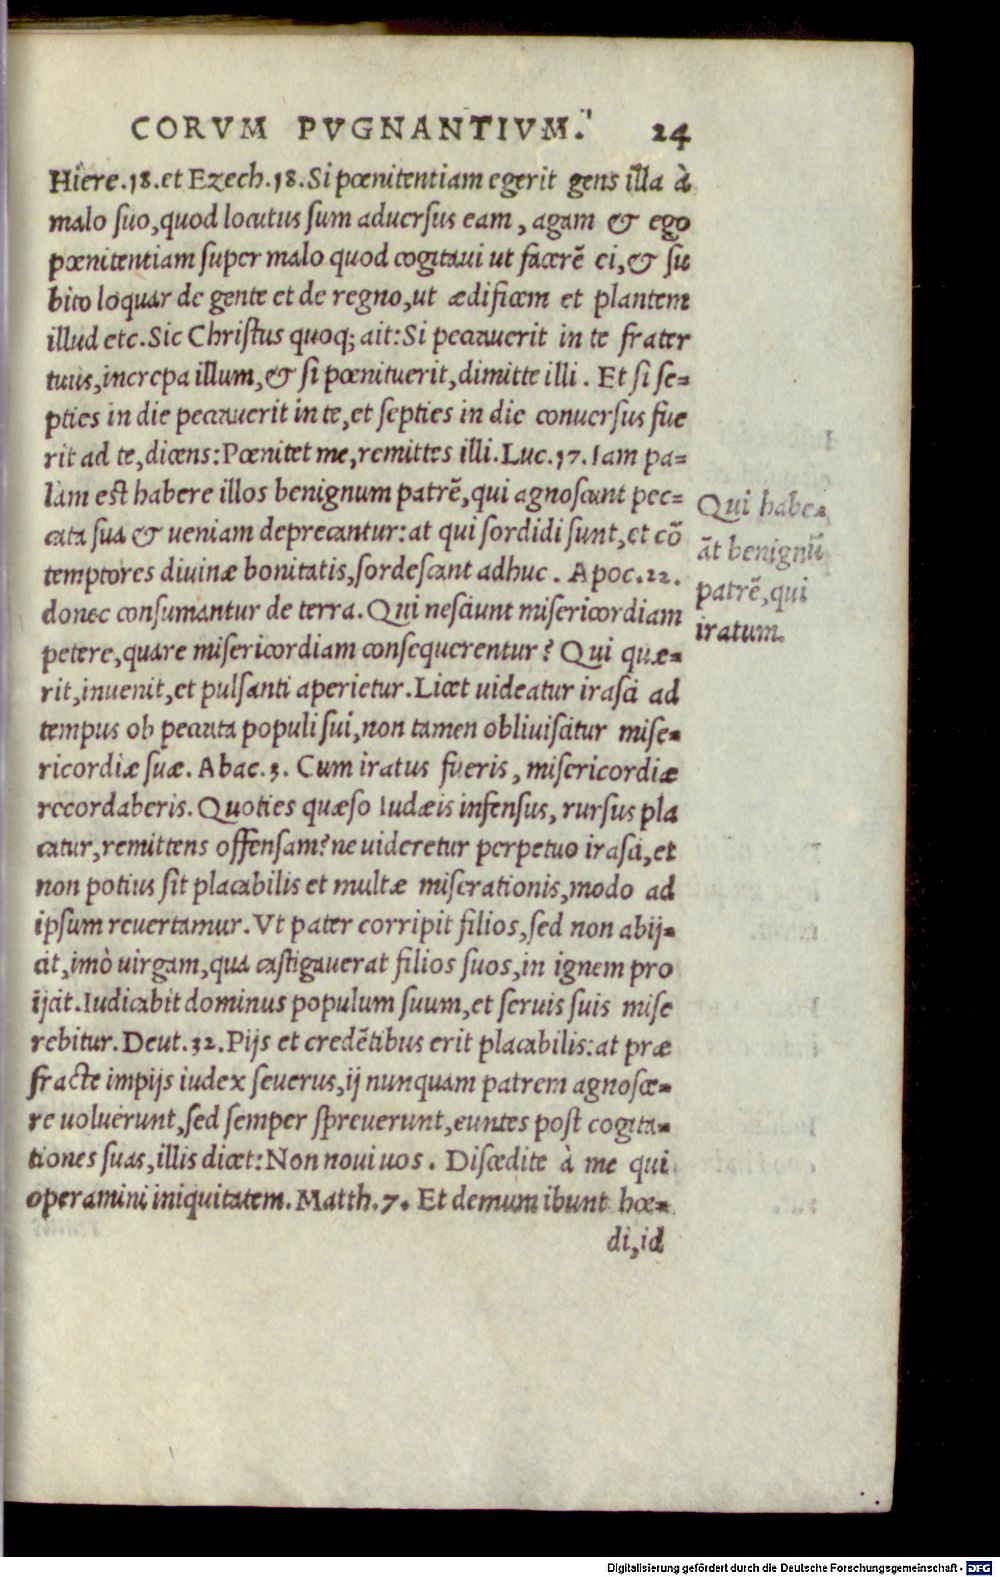 CORVM PVGNANTIVM. 24
Hiere.18.et Ezech.18.Si pœnitentiam egerit gens illa à
malo ſuo,quod locutus ſum aduerſus eam, agam & ego
pœnitentiam ſuper malo quod cogitaui ut facerē ei,& ſu
bito loquar de gente et de regno,ut ædificem et plantem
illud etc.Sic Chriſtus quoq; ait:Si peccauerit in te frater
tuus,increpa illum,& ſi pœnituerit,dimitte illi. Et ſi ſe=
pties in die peccauerit in te,et ſepties in die conuerſus fue
rit ad te,dicens:Pœnitet me,remittes illi.Luc.17.Iam pa=
làm eſt habere illos benignum patrē,qui agnoſcunt pec=
cata ſua & ueniam deprecantur:at qui ſordidi ſunt,et cō
temptores diuinæ bonitatis,ſordeſcant adhuc. Apoc.22.
donec conſumantur de terra. Qui neſciunt miſericordiam
petere,quare miſericordiam conſequerentur? Qui quæ=
rit,inuenit,et pulſanti aperietur.Licet uideatur iraſci ad
tempus ob peccata populi ſui,non tamen obliuiſcitur miſe=
ricordiæ ſuæ. Abac.3. Cum iratus fueris, miſericordiæ
recordaberis. Quoties quæſo Iudæis infenſus, rurſus pla
catur,remittens offenſam?ne uideretur perpetuo iraſci,et
non potius ſit placabilis et multæ miſerationis,modo ad
ipſum reuertamur. Vt pater corripit filios,ſed non abij=
cit,imò uirgam,qua caſtigauerat filios ſuos,in ignem pro
ijcit.Iudicabit dominus populum ſuum,et ſeruis ſuis miſe
rebitur. Deut.32. Pijs et credētibus erit placabilis:at præ
fracte impijs iudex ſeuerus,ij nunquam patrem agnoſce=
re uoluerunt,ſed ſemper ſpreuerunt,euntes poſt cogita=
tiones ſuas,illis dicet:Non noui uos. Diſcedite à me qui
operamini iniquitatem. Matth.7. Et demum ibunt hœ=
di,id
Qui habe=
āt benignū
patrē,qui
iratum.
Digitalisierung gefördert durch die Deutsche Forschungsgemeinschaft - DFG